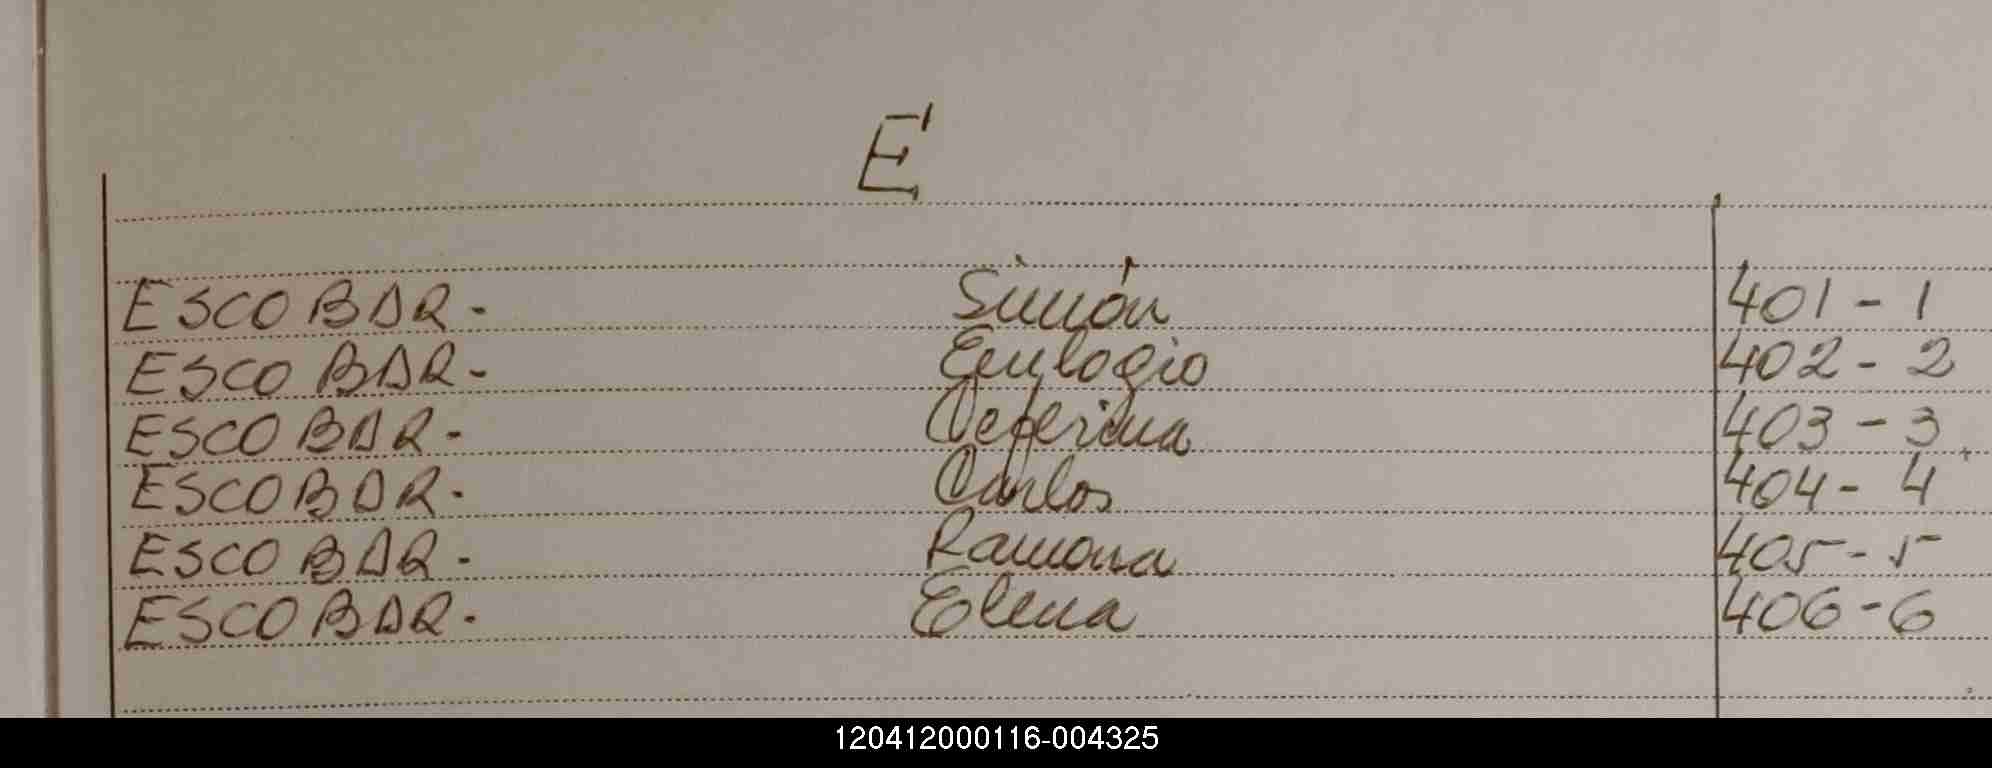 E
ESCOBAR - Simón 401 - 1
ESCOBAR - Eulogio 402 - 2
ESCOBAR - Ceferina 403 - 3
ESCOBAR - Carlos 404 - 4
ESCOBAR - Ramona 405 - 5
ESCOBAR - Elena 406 - 6
120412000116-004325